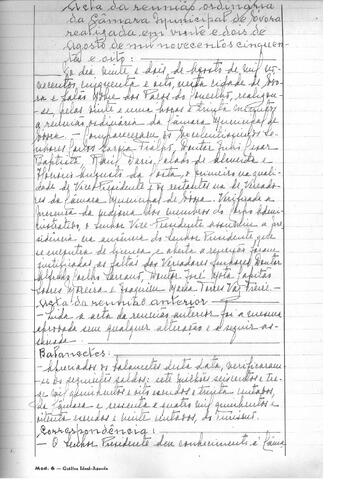 Acta da reunião ordinária
da Câmara Municipal de Évora
realizada em vinte e dois de
Agosto de mil novecentos cinquen-
ta e oito:
Ao dia vinte e dois, de Agosto de mil no-
vecentos, cinquenta e oito, nesta cidade de Évo-
ra e Salas Nobre dos Paços do Concelho, realizou-
se, pelas vinte e uma horas e trinta minutos
a reunião ordinária da Câmara Municipal de
Évora. - Compareceram os Excelentíssimos Se-
nhores Carlos Garcia Fialho, Doutor Júlio César
Baptista, de Almeida e
Augusto da Costa, o primeiro na quali-
dade de Vice-Presidente e os restantes na de Vereado-
res da Câmara Municipal de Évora. Verificada a
presença da maioria dos membros do Corpo Admi-
nistrativo, o Senhor Vice-Presidente assumiu a pre-
sidência na ausência do Senhor Presidente que
se encontra de licença e aberta a reunião foram
justificadas as faltas dos Vereadores Senhores Doutor
Doutor José Mota Capitão
Lopes Moreira e Joaquim Maria Torres Vaz Freire.
Acta da reunião anterior
- Lida a acta da reunião anterior foi a mesma
aprovada sem qualquer alteração e a seguir as-
sinada.
Balancetes:
- Apreciados os balancetes desta data, verificaram-
se os seguintes saldos: sete milhões seiscentos e tre-
ze mil quinhentos e oito escudos e trinta centavos,
da Câmara e sessenta e quatro mil quinhentos e
oitenta escudos e vinte centavos, do Turismo.
Correspondência:
- O Senhor Presidente deu conhecimento à Câma-
Mod. 6 — Gráfica Ideal-Águeda